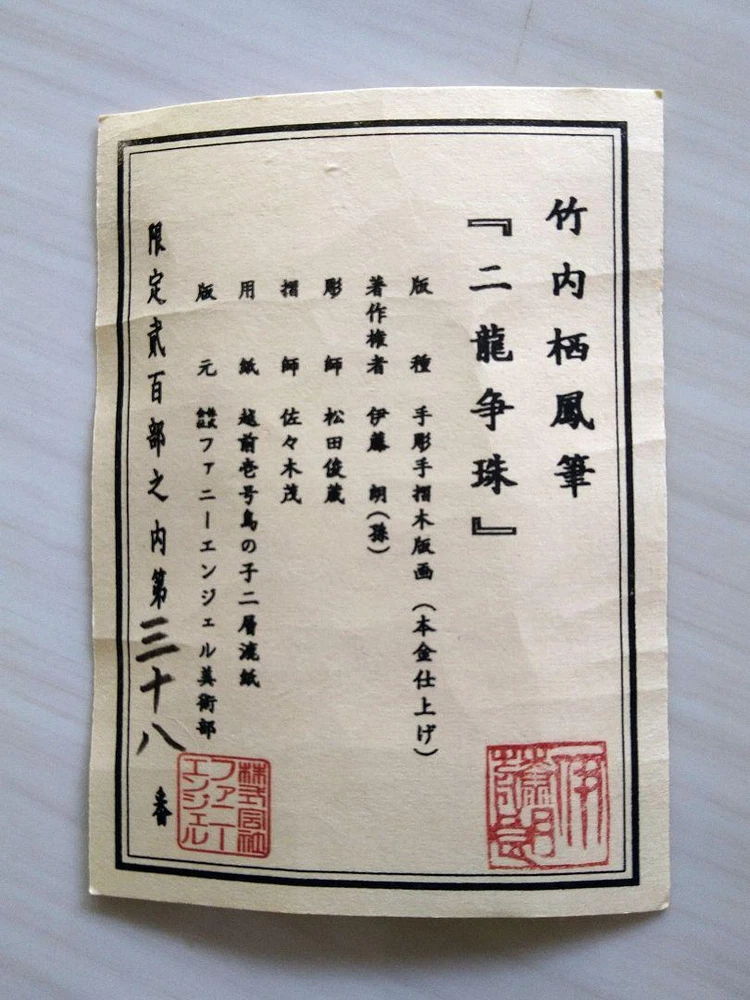 竹内栖鳳筆
『二龍争珠』
版種 手彫手摺木版画(本金仕上げ)
著作権者 伊藤 朗(孫)
彫師 松田俊蔵
摺師 佐々木茂
用紙 越前壱号鳥の子二層漉紙
版元 株式会社ファニーエンジェル美術部
限定貳百部之内第三十八番
伊藤朗
株式会社
ファニー
エンジェル